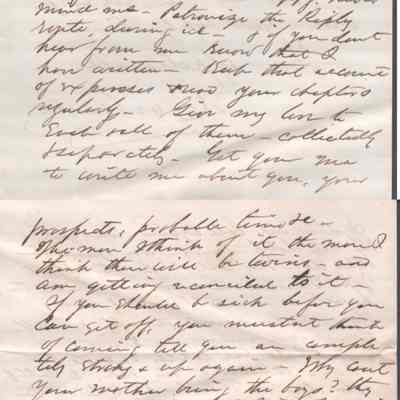 mind me - Patronize the Reply
route, during ice - & if you don't
hear from me know that I
have written - Keep that account
of expenses & read your chapters
regularly - Give my love to
Each & all of them - collectively
& separately - Get your ma
to write me about you, your
prospects, probable time &c -
The more I think of it the more I
think there will be twins - and
am getting reconciled to it -
If you should be sick before you
can get off you mustn't think
of coming till you are comple
tely strong & up again - Why cant
your mother bring the boys? My